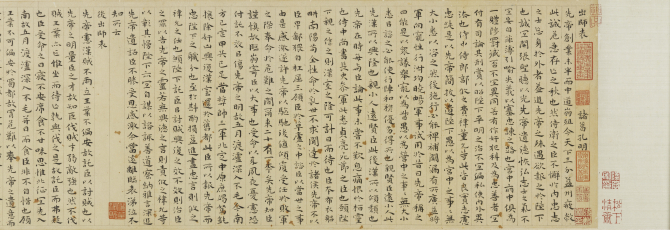 出師表 諸葛孔明
先帝創業未半而中道崩殂今天下三分益州疲敝
此誠危急存亡之秋也然侍衛之臣不懈於内忠志
之士忘身於外者蓋追先帝之殊遇欲報之於陛下
也誠宜開張聖聽以光先帝遺德恢弘志士之氣不
宜妄自菲薄引喻失義以塞忠諫之路也宮中府中俱為
一體陟罰臧否不宜異同若有作奸犯科及為忠善者宜
付有司論其刑賞以昭陛下平明之治不宜偏私使内外異
法也侍中侍郎郭攸之費禕董允等此皆良實志慮
忠純是以先帝簡拔以遺陛下愚以為宮中之事事無
大小悉以咨之然後施行必能裨補闕漏有所廣益將
軍向寵性行淑均曉暢軍事試用於昔日先帝稱之
曰能是以衆議舉寵為督愚以為營中之事事無大小
悉以咨之必能使行陣和睦優劣得所也親賢臣遠小人此
先漢所以興隆也親小人遠賢臣此後漢所以傾頹也
先帝在時每與臣論此事未嘗不歎息痛恨於桓靈
也侍中尚書長史參軍此悉貞亮死節之臣也願陛下
親之信之則漢室之隆可計日而待也臣本布衣躬
耕南陽苟全性命於亂世不求聞達於諸侯先帝不以
臣卑鄙猥自枉屈三顧臣於草廬之中諮臣以當世之事
由是感激遂許先帝以驅馳後值傾覆受任於敗軍
之際奉命於危難之間爾來二十有一年矣先帝知臣
謹慎故臨崩寄臣以大事也受命以來夙夜憂歎恐
付託不效以傷先帝之明故五月渡瀘深入不毛今南
方已定兵甲已足當獎帥三軍北定中原庶竭駑鈍
攘除姦凶興復漢室還於舊都此臣所以報先帝而忠
陛下之職分也至於斟酌損益進盡忠言則攸之
禕允之任也願陛下託臣以討賊興復之效不效則治臣
之罪以告先帝之靈若無興德之言則責攸之禕允等
咎以彰其慢陛下亦宜自謀以諮諏善道察納雅言深追
先帝遺詔臣不勝受恩感激今當遠離臨表涕泣不
知所云
後出師表
先帝慮漢賊不兩立王業不偏安故託臣以討賊也以
先帝之明量臣之才故知臣伐賊才弱敵強也然不伐
賊王業亦亡惟坐而待亡孰與伐之是故託臣而弗疑
也臣受命之日寢不安席食不甘味思惟北征宜先入
南故五月渡瀘深入不毛并日而食臣非不自惜也顧
王業不可偏安於蜀都故冒危難以奉先帝之遺意而